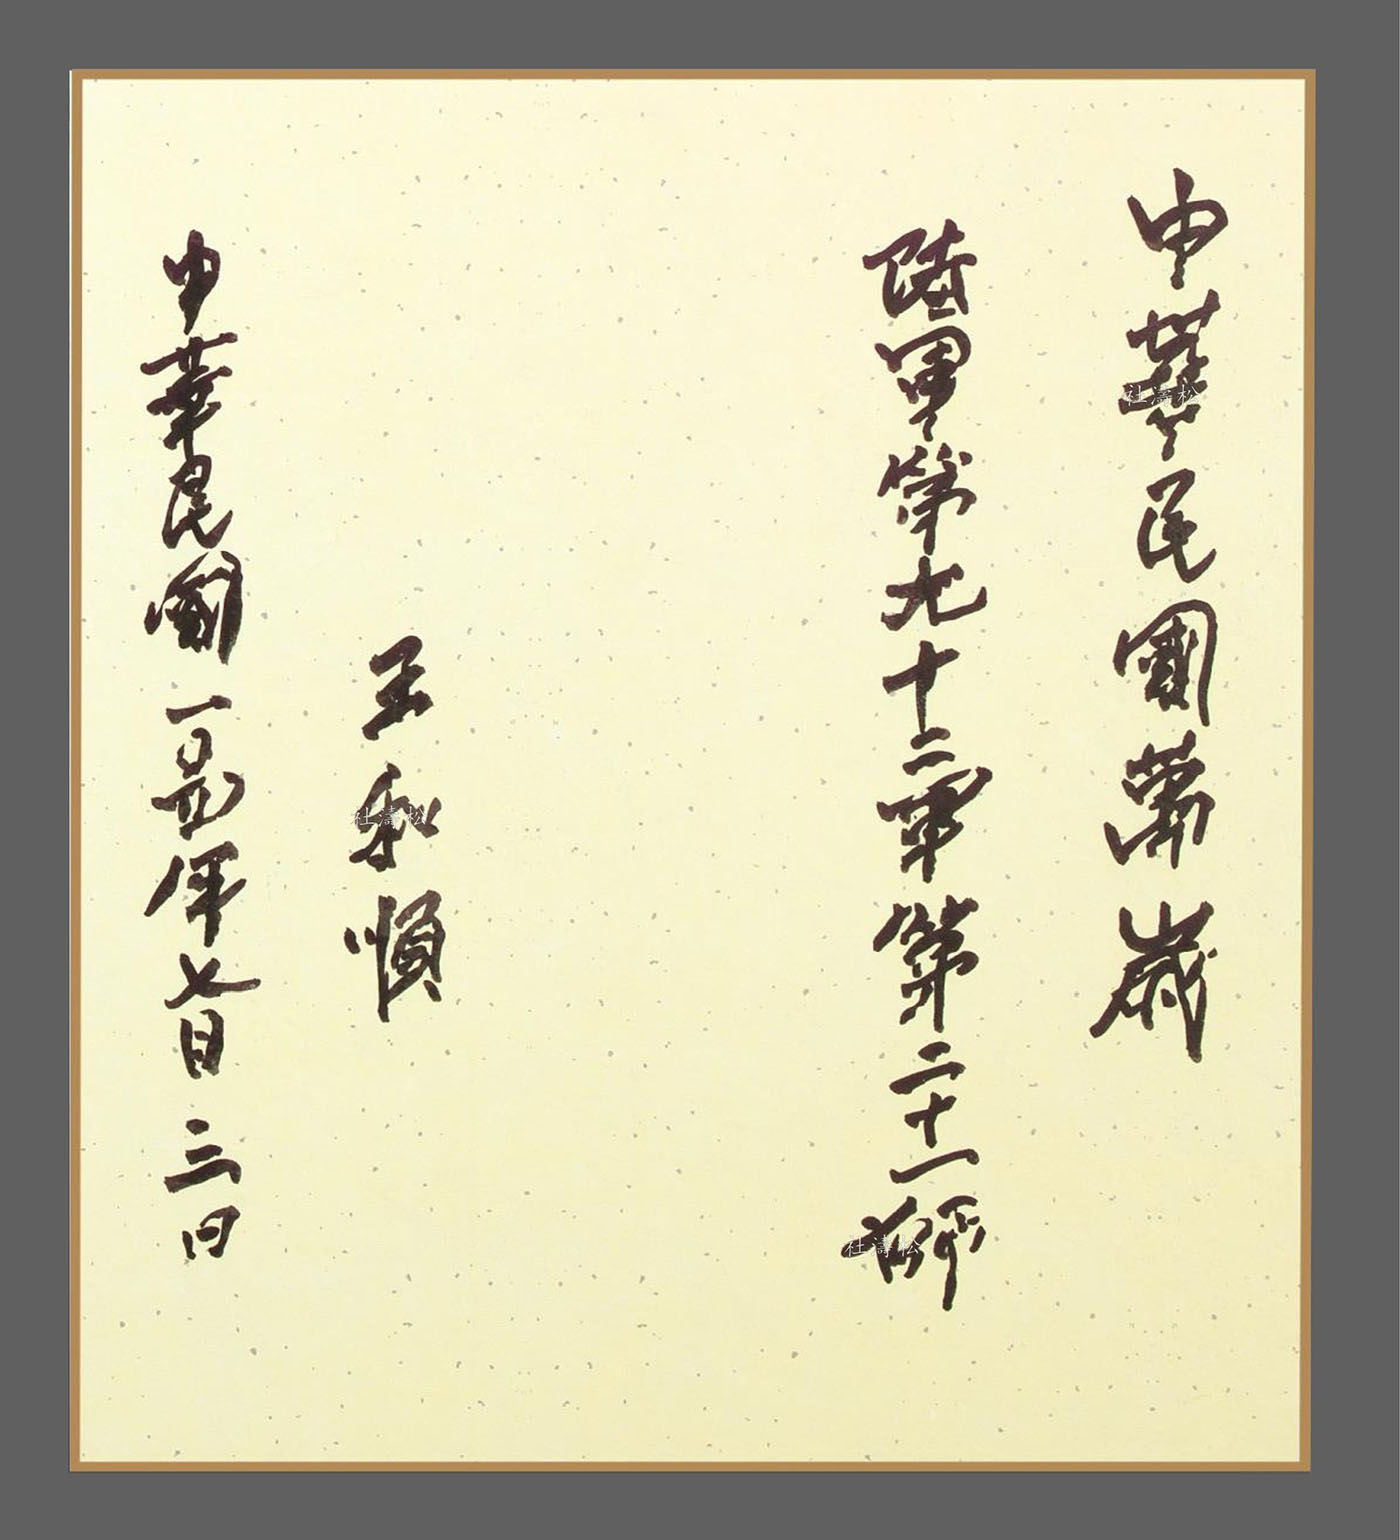 中華民國萬歲
陸軍第九十二軍第二十一師
王和順
中華民國一〇四年七月三日
杜濤松
杜濤松
杜濤松